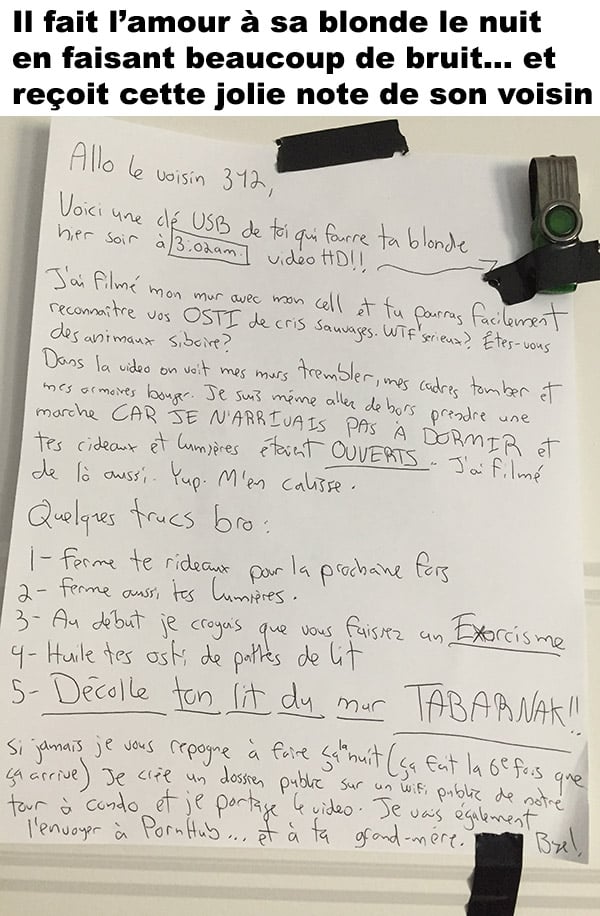 Il fait l’amour à sa blonde le nuit
en faisant beaucoup de bruit... et
reçoit cette jolie note de son voisin
Allo le voisin 312,
Voici une clé USB de toi qui fourre ta blonde
hier soir à 3:02am. video HD!!
J'ai filmé mon mur avec mon cell et tu pourras facilement
reconnaître vos OSTI de cris sauvages. WTF serieux? Êtes-vous
des animaux siboire?
Dans la video on voit mes murs trembler, mes cadres tomber et
mes armoires bouger. Je suis même aller dehors prendre une
marche CAR JE N'ARRIVAIS PAS À DORMIR et
tes rideaux et lumières étaient OUVERTS.. J'ai filmé
de là aussi. Yup. M'en calisse.
Quelques trucs bro:
1- Ferme te rideaux pour la prochaine fois
2- Ferme aussi tes lumières.
3- Au début je croyais que vous faisiez un Exorcisme
4- Huile tes osti de pattes de lit
5- Décolle ton lit du mur TABARNAK!!
Si jamais je vous repogne à faire ça la nuit (ça fait la 6e fois que
ça arrive) Je crée un dossier public sur un wifi public de notre
tour à condo et je partage le video. Je vais également
l'envoyer à PornHub... et à ta grand-mère. Bye!